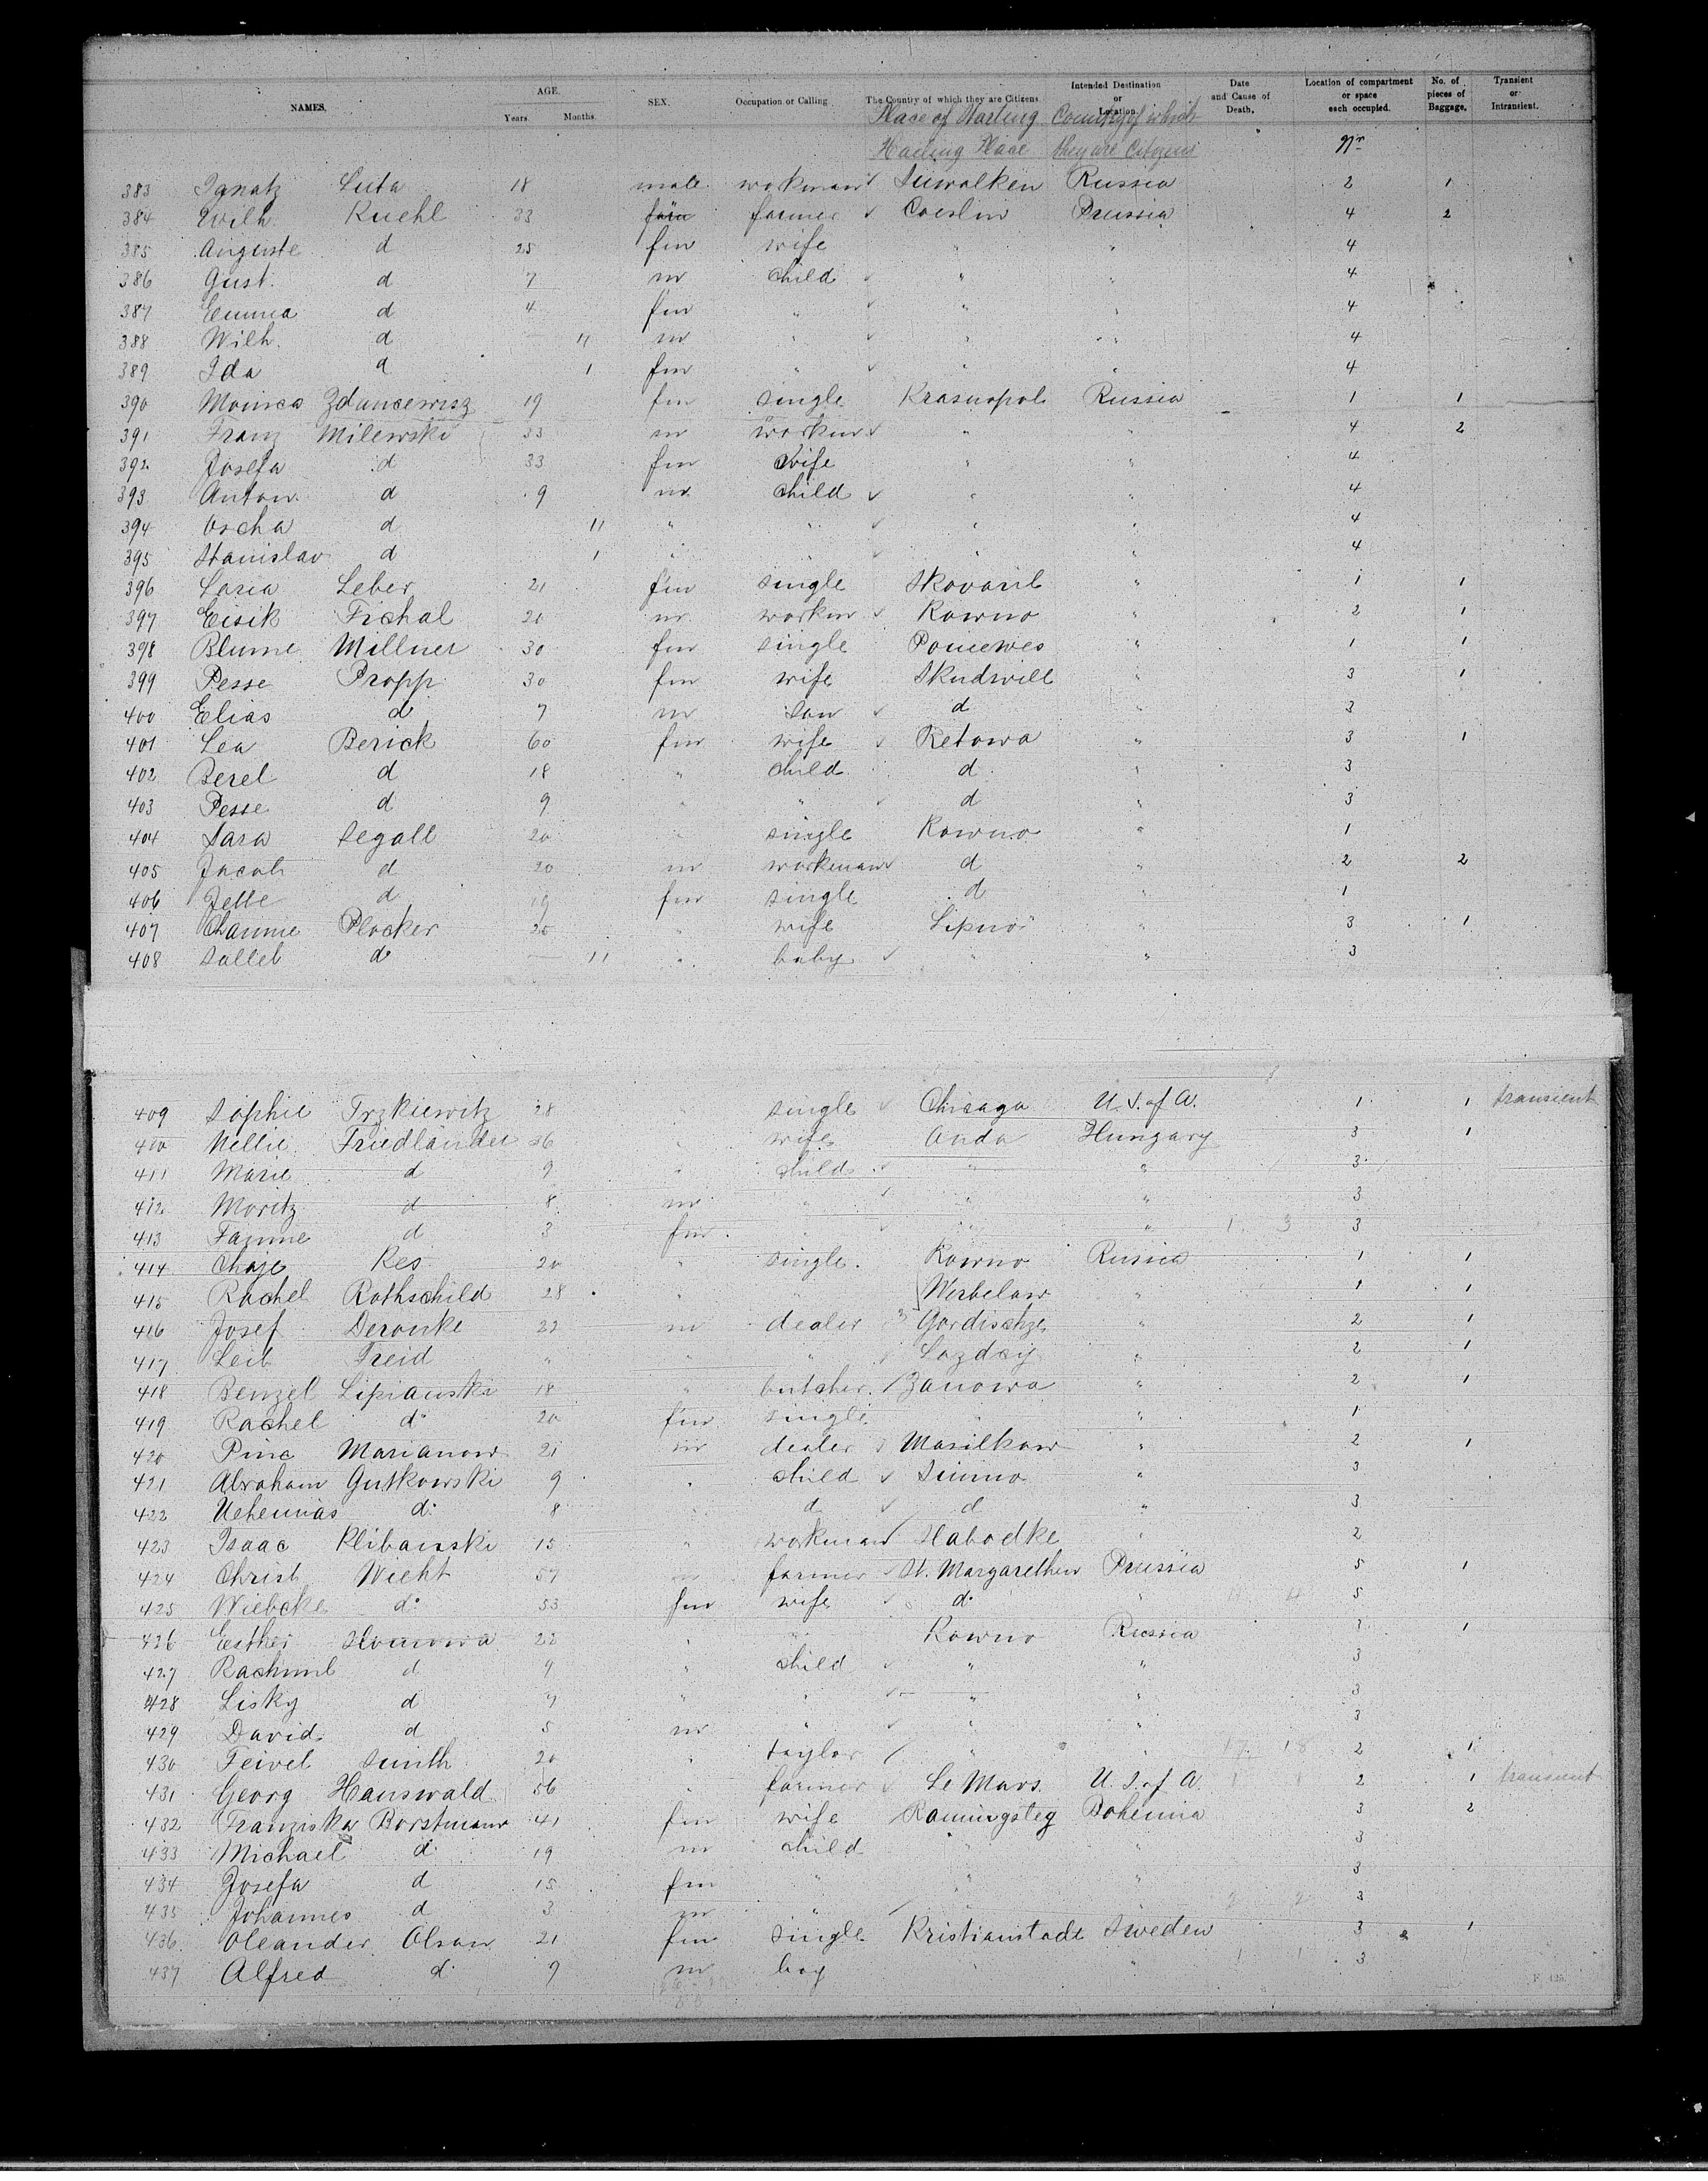 NAMES. AGE. Years. Months. SEX. Occupation or Calling The Country of which they are Citizens. Intended Destination or Location. Date and Cause of Death. Location of compartment or space each occupied. No. of pieces of Baggage. Transient or Intransient.
Place of Starting Country of which
Hailing Place they are Citizens Nr
383 Ignatz Luta 18 male workman Suwalken Russia 2 1
384 Wilh Kuehl 33 farmer Coeslin Prussia 4 2
385 Auguste d 25 fm wife " " 4
386 Gust. d 7 m child " " 4
387 Emma d 4 fm " " " 4
388 Wilh. d — 11 m " " " 4
389 Ida d 1 fm " " " 4
390 Monica Zdancewisz 19 fm single Krasnopol Russia 1 1
391 Franz Milewski 33 m workm " " 4 2
392 Josefa d 33 fm wife " " 4
393 Anton d 9 m child " " 4
394 Oscha d 11 " " " " 4
395 Stanislav d 1 " " " " 4
396 Leber 21 fm single " 1 1
397 Eisik Frchal 20 m workm Kowno " 2 1
398 Blume Millner 30 fm single Ponewes " 1 1
399 Pesse Propp 30 fm wife Skudwill " 3 1
400 Elias d 7 m son d " 3
401 Lea Berick 60 fm wife Retowa " 3 1
402 Berel d 18 " child d " 3
403 Pesse d 9 " " d " 3
404 Sara Segall 20 " single Kowno " 1
405 Jacob d 20 m workman d " 2 2
406 Jette d 19 fm single d " 1
407 Channe Plocker 25 " wife Lipno " 3 1
408 d° — 11 " baby " " 3
409 Sophie Trzkiewitz 28 " single Chicago U.S. of A. 1 1 transient
410 Nellie Friedländer 36 " wife Anda Hungary 3 1
411 Marie d 9 " child " " 3
412 Moritz d 8 m " " " 3
413 Fannie d 3 fm " " " 1 3 3
414 Chaje Res 20 " single. Kowno Russia 1 1
415 Rachel Rothschild 28 " " Werbelaw " 1 1
416 Josef Deronke 22 m dealer Gordischze " 2 1
417 Leib Freid " " " Lazdey " 2 1
418 Benzel Lipianski 18 " butcher. Zanowa " 2 1
419 Rachel d° 20 fm single " " 1
420 Pinc Marianow 21 m dealer Masilkow " 2 1
421 Abraham Gutkowski 9 " child Simno " 3
422 Nehemias d° 8 " d d " 3
423 Isaac Klibanski 15 " workman Slabodke " 2
424 Christ Wieht 57 m farmer St. Margarethen Prussia 5 1
425 Wiebcke d° 53 fm wife d° " 5
426 Esther 22 " " Kowno Russia 3 1
427 Rachmil d 9 " child " " 3
428 Lisky d 7 " " " " 3
429 David d 5 m " " " 3
430 Feivel Smith 20 " taylor " " 17 18 2 1
431 Georg Hanswald 56 " farmer Le Mars. U.S. of A. 2 1 transient
432 Franziska Borstmann 41 fm wife Ramingsteg Bohemia 3 2
433 Michael d° 19 m child " " 3
434 Josefa d 15 fm " " " 3
435 Johannes d 3 m " " " 2 2 3
436 Oleander Olson 21 fm single Kristianstadt Sweden 3 1
437 Alfred d° 7 m boy " " 1 1 3
F. 425.